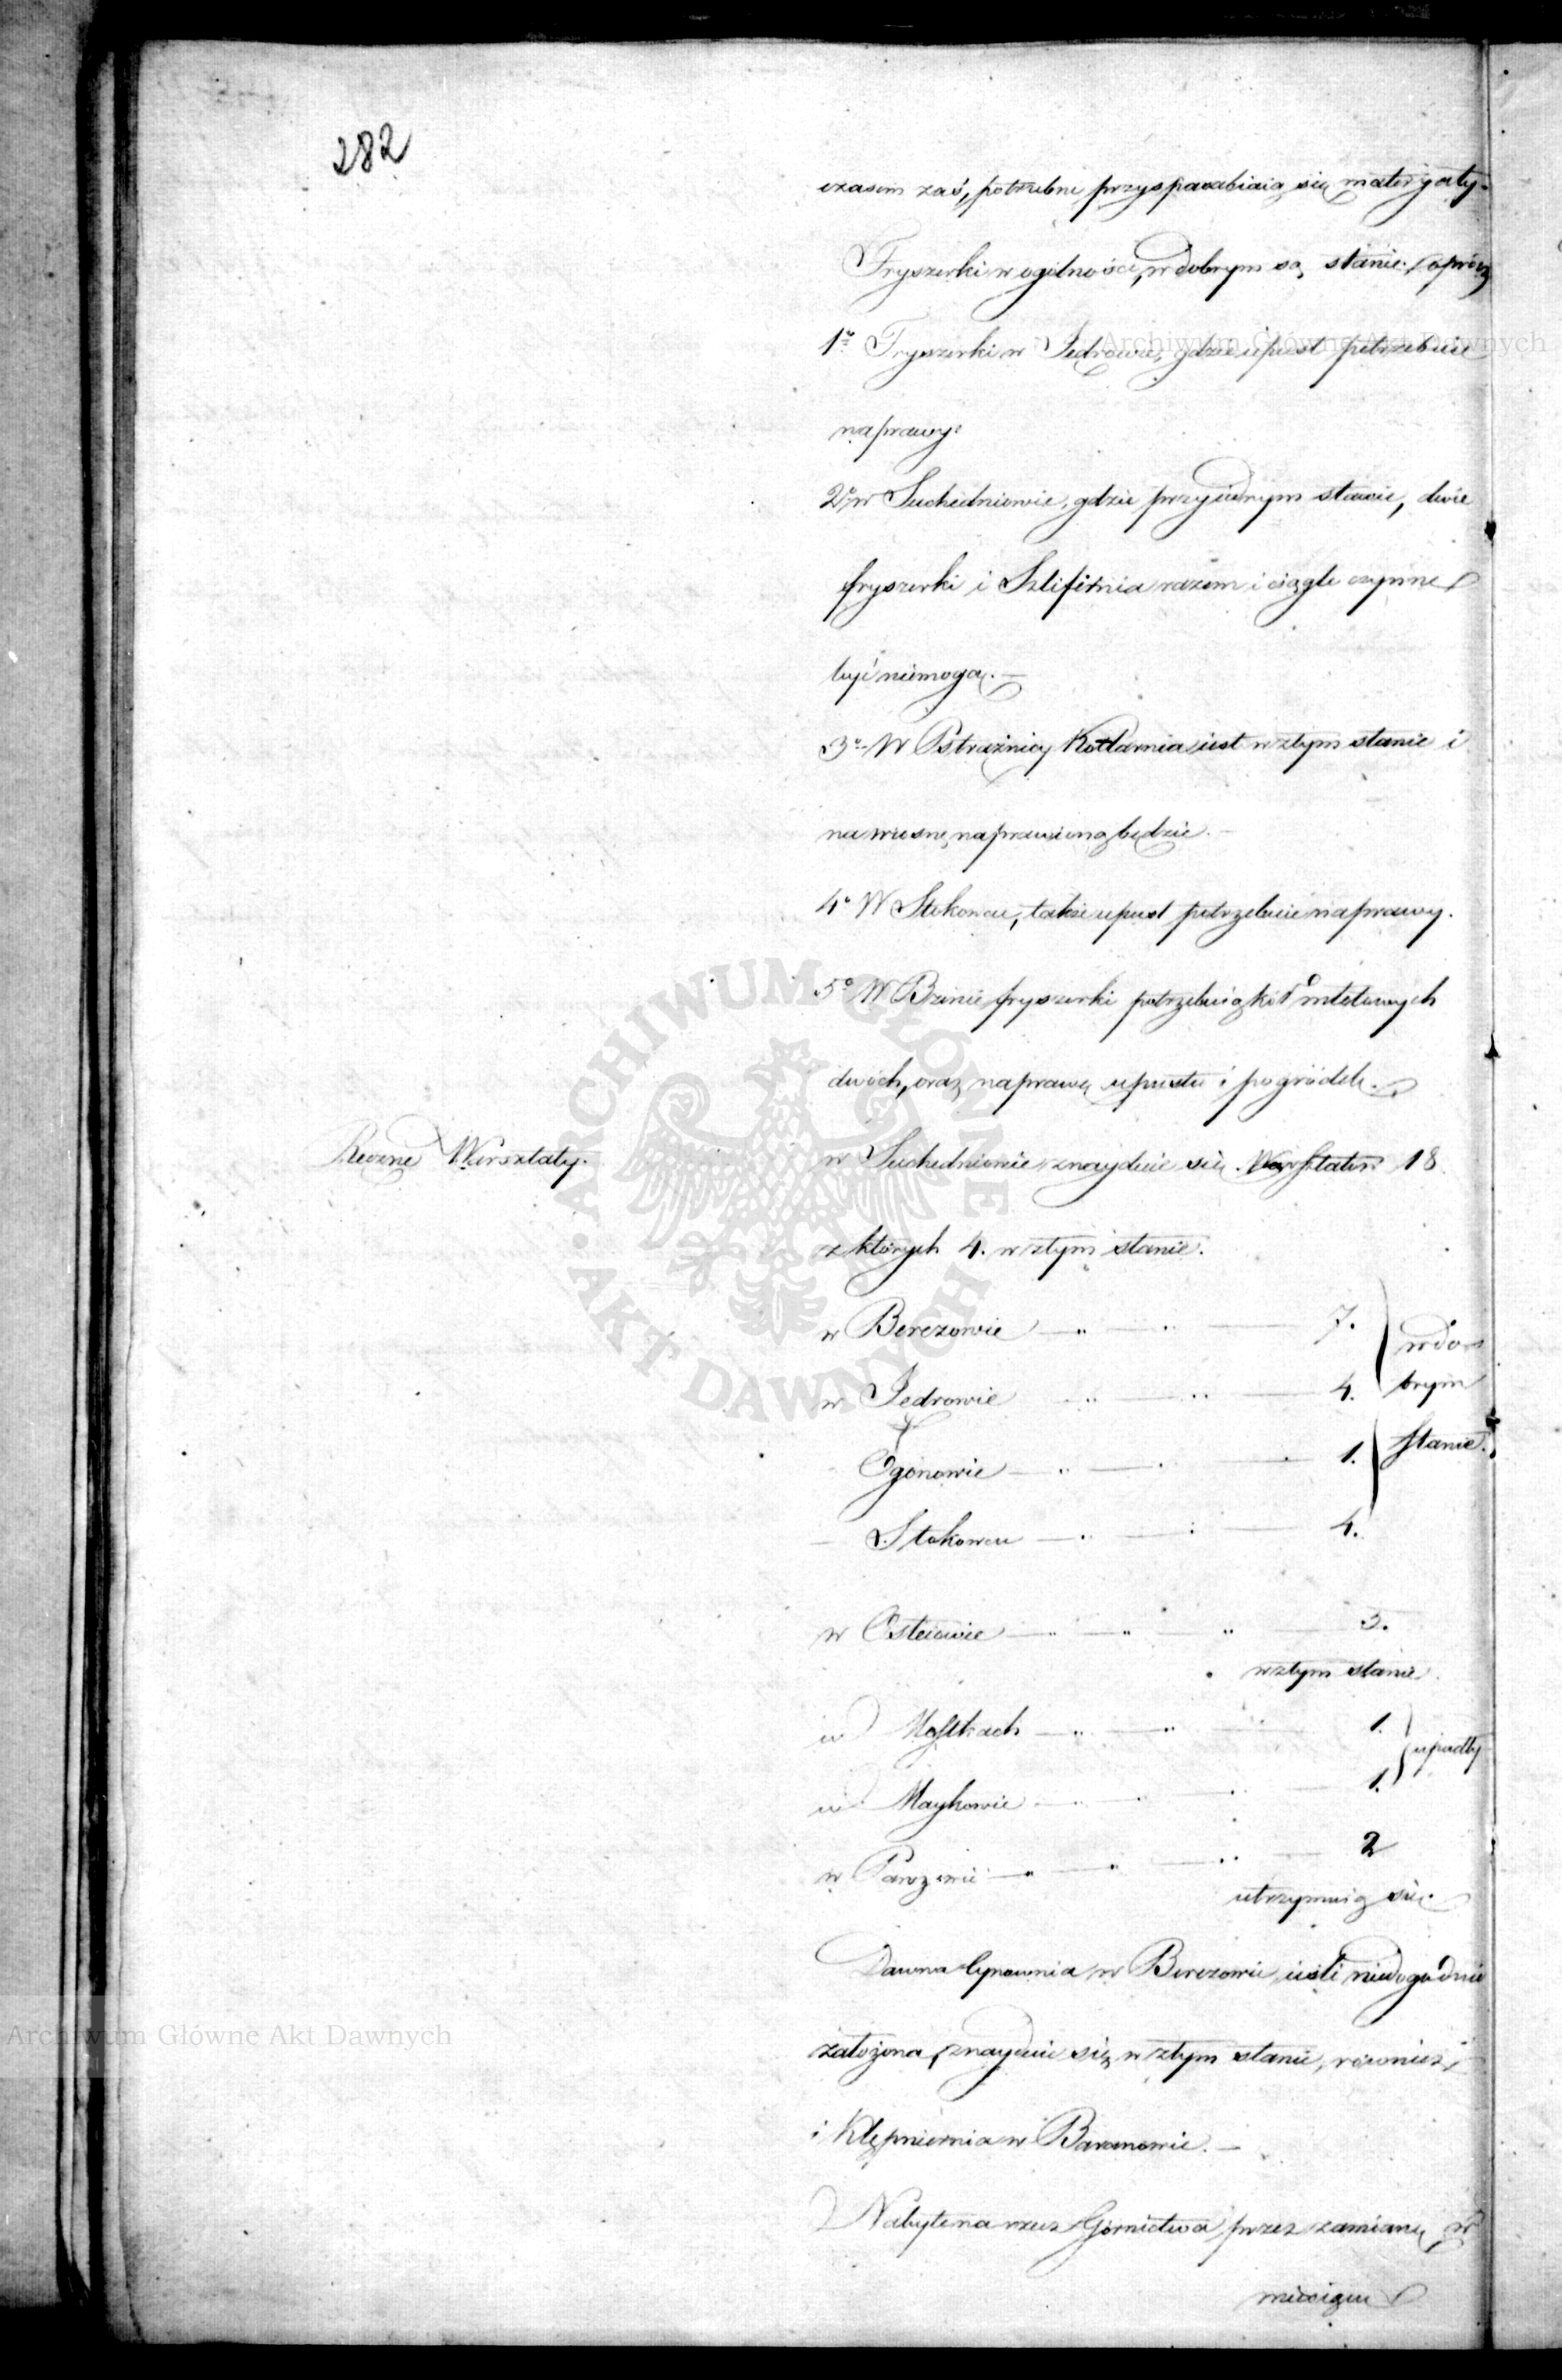 282
czasem zaś, potrzebne przysposabiaią się materyały.
Fryszerki w ogólności, w dobrym są stanie oprócz
1º Fryszerki w Jędrowie, gdzie upust potrzebuie
naprawy.
2º w Suchedniowie, gdzie przy iednym stawie, dwie
fryszerki i Szlifiernia razem i ciągle czynne
być niemogą.
3º W Pstrążnicy Kotlarnia iest w złym stanie i
na wiosnę naprawioną będzie.
4º W Stokowcu, także upust potrzebuie naprawy.
5º W Bzinie fryszerki potrzebuią kół młotowych
dwóch, oraz naprawę upustu i pogródek.
Ręczne Warsztaty.
w Suchedniowie znayduie się Warsztatów 18
z których 4. w złym stanie.
w Berezowie 7.
w do=
w Jędrowie 4.
brym
Ogonowie 1.
Stanie.
Stokowcu 4.
w Ostoiowie 3.
w złym stanie.
w Mostkach 1.
upadły
w Maykowie 1.
w Parszowie 2
utrzymuią się.
Dawna Cynownia w Berezowie, iest niedogodnie
założona, znayduie się w złym stanie, również
i Klepniernia w Baranowie.
Nabyte na rzecz Górnictwa przez zamianę w
miesiącu